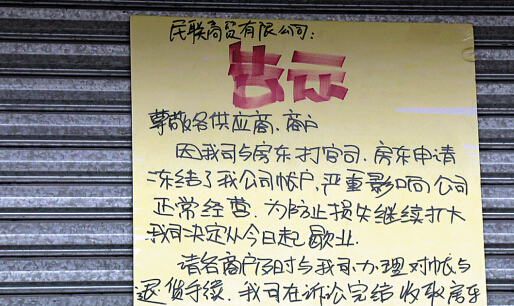 民联商贸有限公司:
告示
尊敬各供应商、商户
因我司与房东打官司、房东申请
冻结了我公司帐户,严重影响公司
正常经营。为防止损失继续扩大
我司决定从今日起歇业.
请各商户及时与我司办理对帐与
退货手续。我司在诉讼完结收取房东